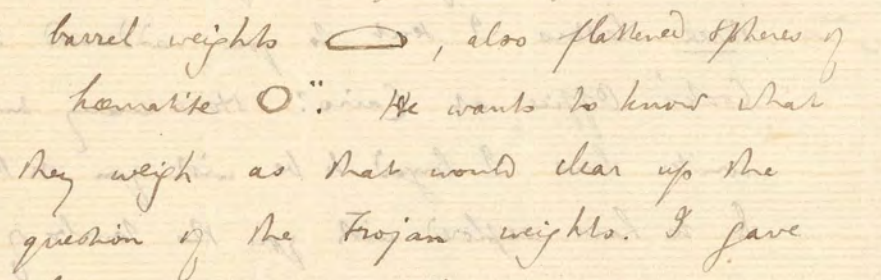 barrel weights , also flattened spheres of
hæmatite O". He wants to know what
they weigh as that would clear up the
question of the Trojan weights. I gave